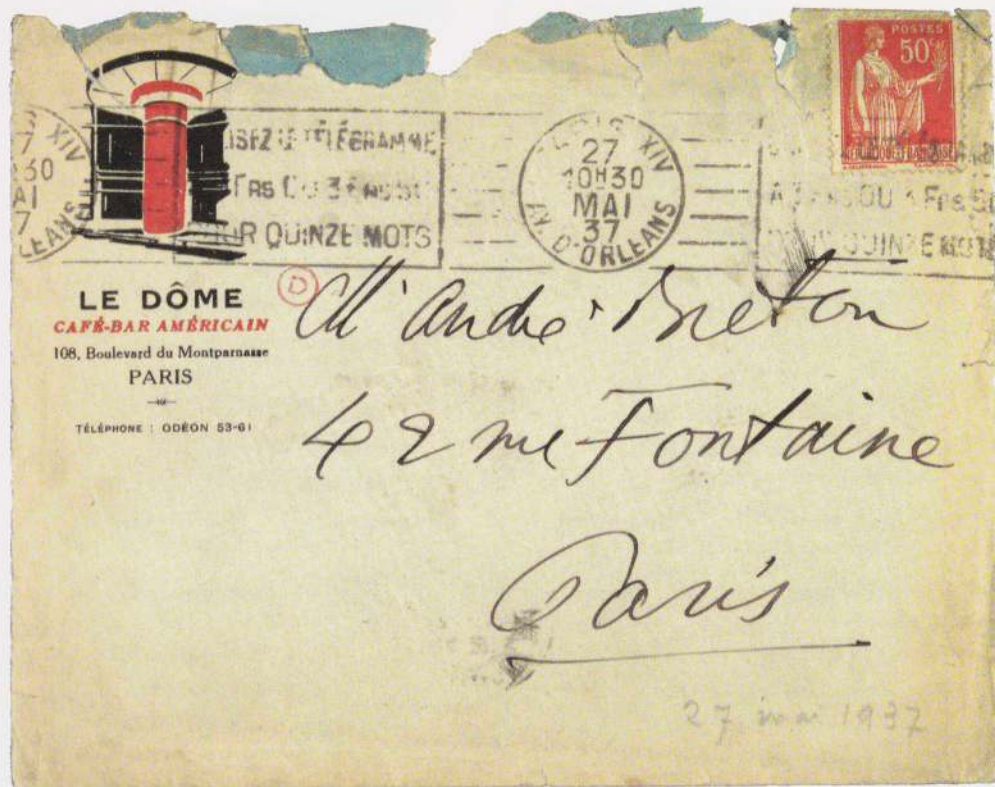 POSTES
50c
27
10H30
MAI
37
AV. D'ORLEANS
XIV
TÉLÉGRAMME
QUINZE MOTS
QUINZE MOTS
LE DÔME
CAFÉ-BAR AMÉRICAIN
108, Boulevard du Montparnasse
PARIS
TÉLÉPHONE : ODÉON 53-61
D
Mr André Breton
42 rue Fontaine
Paris
27 mai 1937